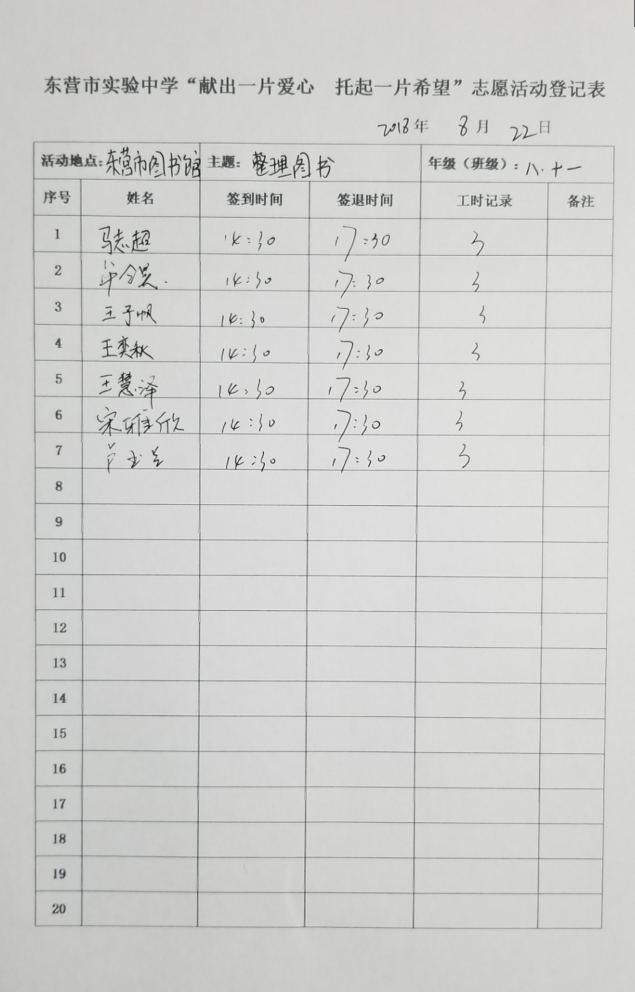 东营市实验中学“献出一片爱心 托起一片希望”志愿活动登记表
2018年 8月 22日
活动地点:东营市图书馆 主题:整理图书 年级（班级）:八.十一
序号 姓名 签到时间 签退时间 工时记录 备注
1 马志超 14:30 17:30 3
2 14:30 17:30 3
3 王予帆 14:30 17:30 3
4 王奕秋 14:30 17:30 3
5 王慧泽 14:30 17:30 3
6 宋雅欣 14:30 17:30 3
7 14:30 17:30 3
8
9
10
11
12
13
14
15
16
17
18
19
20